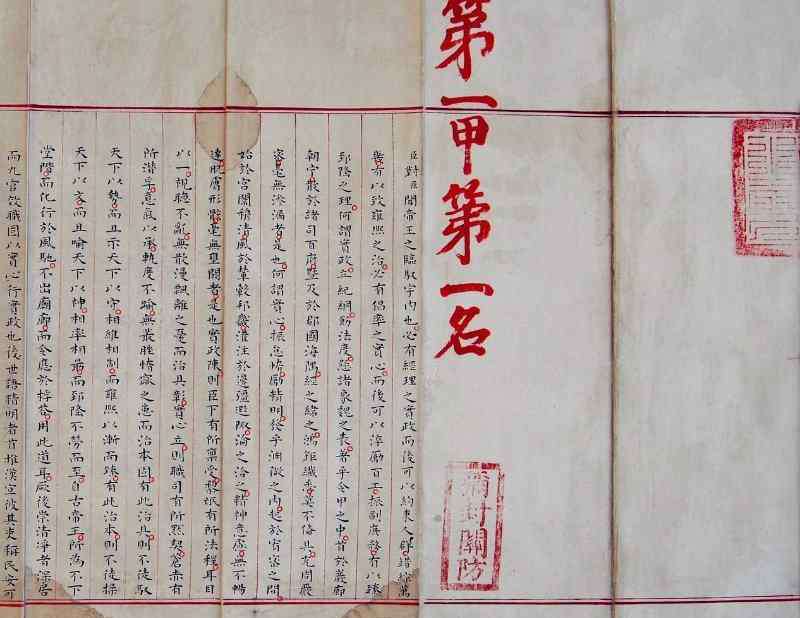 第一甲第一名
彌封關防
臣對臣聞帝王之臨馭宇內也必有經理之實政而後可以約束人群錯綜萬
機有以致雍熙之治必有倡率之實心而後可以淬勵百工振刷庶務有以臻
郅隆之理何謂實政立紀綱飭法度懸諸象魏之表著乎令甲之中首於巖廊
朝寧散於諸司百府暨及於郡國海隅經之緯之鴻鉅纖悉莫不備具充周嚴
密毫無滲漏者是也何謂實心振怠惰勵精明發乎淵微之內起於宥密之間
始於宮闈穆清風於輦轂邦畿灌注於邊疆遐陬淪之洽之精神意慮無不暢
達肌膚形骸毫無壅閼者是也實政陳則臣下有所稟受黎氓有所法程耳目
以一視聽不亂無散漫飄離之憂而治具彰實心立則職司有所默契蒼赤有
所潛孚意氣以承軌度不踰無叢脞惰窳之患而治本固有此治具則不徒馭
天下以勢而且示天下以守相維相制而雍熙以漸而臻有此治本則不徒操
天下以文而且喻天下以神相率相勖而郅隆不勞而至自古帝王所為不下
堂階而化行於風馳不出廟廊而令應於桴答用此道耳厥後崇清淨者深居
而九官效職固以實心行實政也後世語精明者首推漢宣彼其吏稱民安可